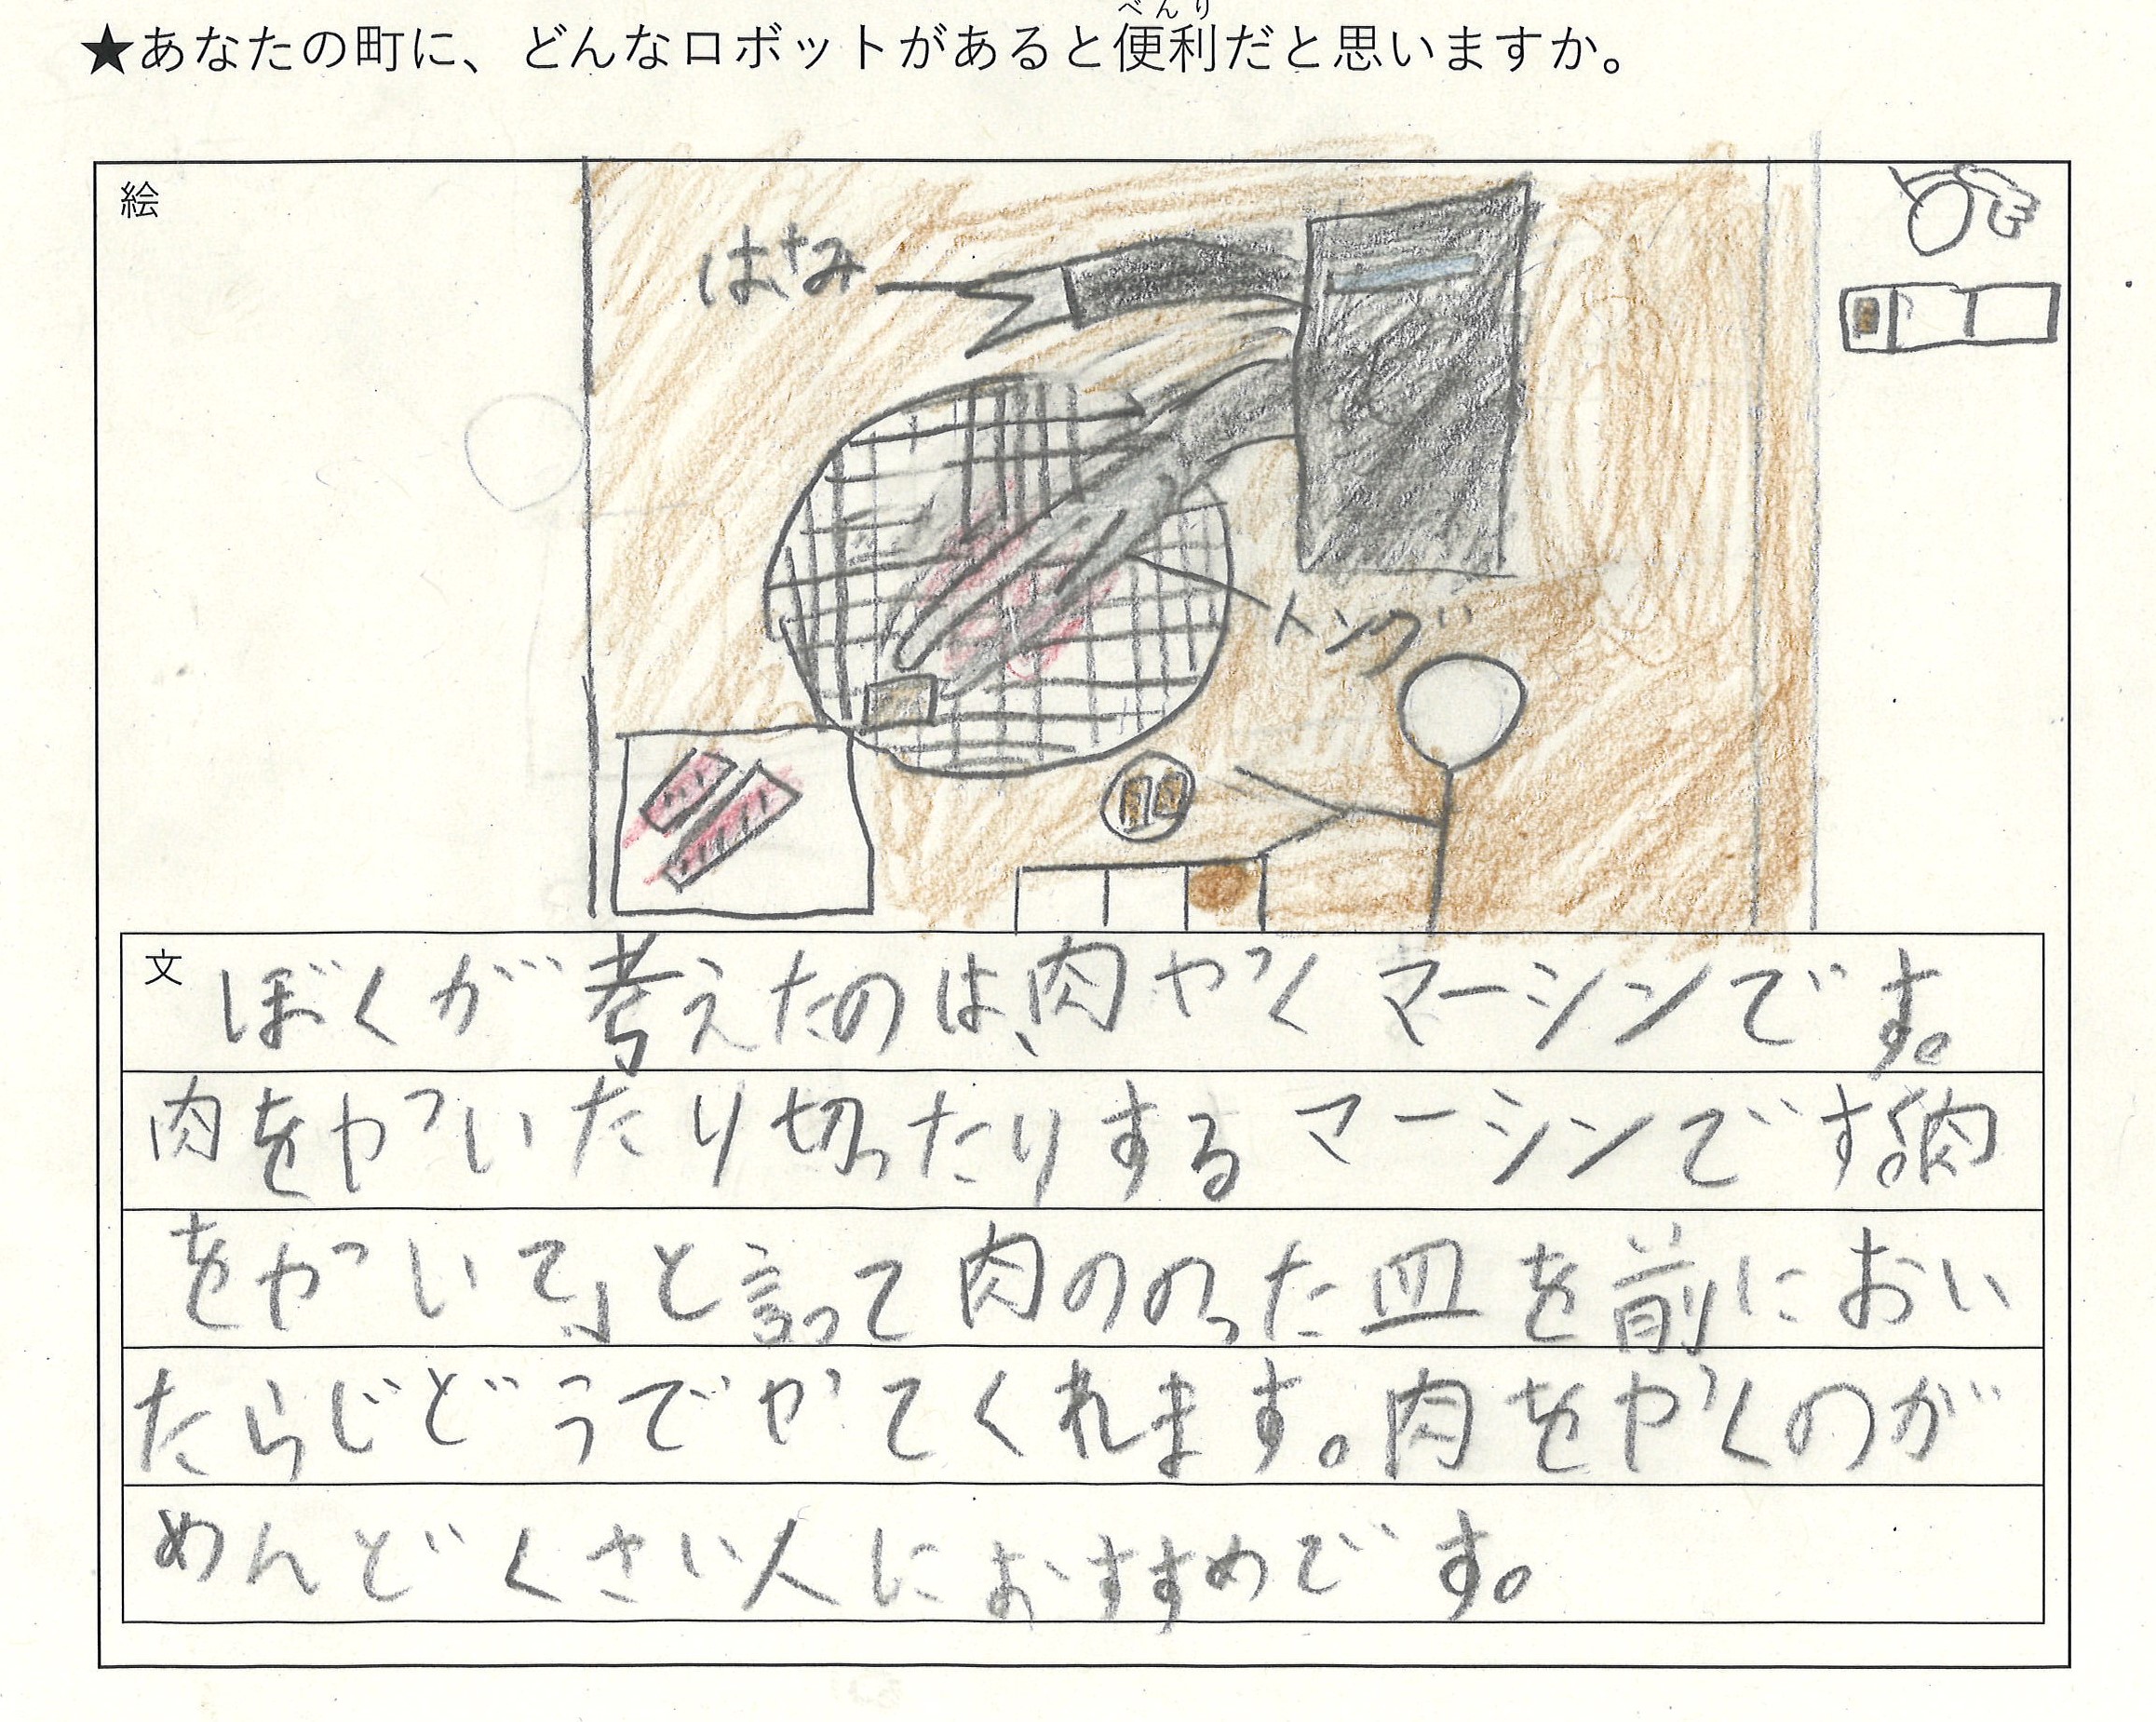 べんり
★あなたの町に、どんなロボットがあると便利だと思いますか。
絵
トング
文
ぼくが考えたのは、肉やくマーシンです。
肉をやいたり切ったりするマーシンです。「肉
をやいて」と言って肉ののった皿を前におい
たらじどうでやてくれます。肉をやくのが
めんどくさい人におすすめです。